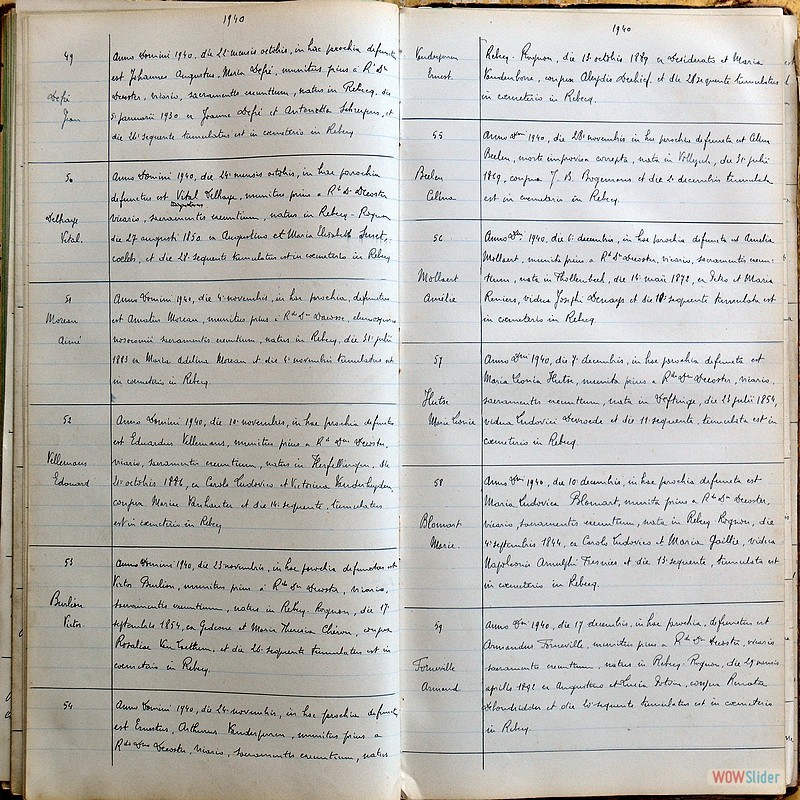 1940
49
Defré
Jean
Anno Domini 1940, die 22a mensis octobris, in hac parochia defunctus
est Johannes Augustus, Maria Defré, munitus prius a Rdo Dno
Decoster, vicario, sacramentis exeuntium, natus in Rebecq, die
5a januarii 1930 ex Joanne Defré et Antonetta et
die 26a sequente tumulatus est in cœmeterio in Rebecq
50
Delhaye
Vital.
Anno Domini 1940, die 24a mensis octobris, in hac parochia
defunctus est Vital Delhaye, munitus prius a Rdo Dno Decoster
vicario, sacramentis exeuntium, natus in Rebecq-Rognon
die 27 augusti 1850 ex Augustino et Maria Elisabeth
cœlebs, et die 28a sequente tumulatus est in cœmeterio in Rebecq
51
Moreau
Aimé
Anno Domini 1940, die 4a novembris, in hac parochia, defunctus
est Amatus Moreau, munitus prius a Rdo Dno
nosocomii sacramentis exeuntium, natus in Rebecq, die 31a julii
1883 ex Maria Adelina Moreau et die 6a novembris tumulatus est
in cœmeterio in Rebecq.
52
Villemans
Edouard
Anno Domini 1940, die 10a novembris, in hac parochia defunctus
est Eduardus Villemans, munitus prius a Rdo Dno Decoster,
vicario, sacramentis exeuntium, natus in Herffelingen, die
21a octobris 1886, ex Carolo Ludovico et Victorina Vanderheyden,
conjux Mariæ Vanhauter et die 14a sequente, tumulatus
est in cœmeterio in Rebecq
53
Burlion
Victor.
Anno Domini 1940, die 23a novembris, in hac parochia defunctus est
Victor Burlion, munitus prius a Rdo Dno Decoster, vicario,
sacramentis exeuntium, natus in Rebecq-Rognon, die 17a
septembris 1854, ex Gedeone et Maria Theresia conjux
Rosaliæ et die 26a sequente tumulatus est in
cœmeterio in Rebecq.
54
Anno Domini 1940, die 24a novembris, in hac parochia defunctus
est Ernestus, Arthurus Vanderperren, munitus prius a
Rdo Dno Decoster, vicario, sacramentis exeuntium, natus
1940
Vanderperren
Ernest.
Rebecq-Rognon, die 13a octobris 1889 ex Desiderato et Maria
Vandenborre, conjux et die 28a sequente tumulatus
in cœmeterio in Rebecq.
55
Beelen
Celina
Anno Dni 1940, die 28a novembris in hac parochia defuncta est
Beelen, morte improvisa correpta, nata in die 31a julii
1869, conjux J. B. Bogemans et die 2a decembris tumulata
est in cœmeterio in Rebecq.
56
Mollaert
Amélie
Anno Dni 1940, die 6a decembris, in hac parochia defuncta est Amelia
Mollaert, munita prius a Rdo Dno Decoster, vicario, sacramentis exeun-
tium, nata in Thollembeek, die 14a maii 1872, ex Petro et Maria
Reniers, vidua Josephi Denayer et die 10a sequente tumulata est
in cœmeterio in Rebecq.
57
Hutse
Marie Léonie
Anno Dni 1940, die 7a decembris, in hac parochia defuncta est
Maria Leonia Hutse, munita prius a Rdo Dno Decoster, vicario,
sacramentis exeuntium, nata in Deftinge, die 23 julii 1854,
vidua Ludovici Devroede et die 11a sequente, tumulata est in
cœmeterio in Rebecq.
58
Blomart
Marie.
Anno Dni 1940, die 10a decembris, in hac parochia defuncta est
Maria Ludovica Blomart, munita prius a Rdo Dno Decoster,
vicario, sacramentis exeuntium, nata in Rebecq-Rognon, die
4a septembris 1844, ex Carolo Ludovico et Maria vidua
Napoleonis et die 13a sequente, tumulata est
in cœmeterio in Rebecq.
59
Forneville
Armand
Anno Dni 1940, die 17a decembris, in hac parochia, defunctus est
Armandus Forneville, munitus prius a Rdo Dno Decoster, vicario
sacramentis exeuntium, natus in Rebecq-Rognon, die 29 mensis
aprilis 1892 ex Augustino et Lucia conjux
et die 20a sequente tumulatus est in cœmeterio
in Rebecq.
WOWSlider